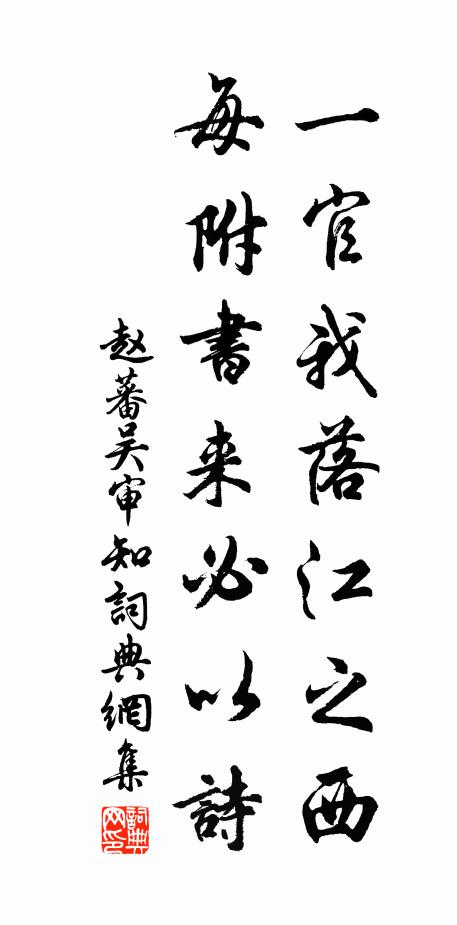 一官我落江之西
每附書来必以詩
赵蕃吴审知詞典網集
詞典网印